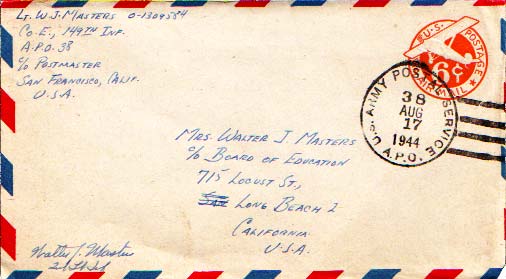 Lt. W. J. Masters O-1309584
Co. E., 149th Inf.
A.P.O. 38
c/o Postmaster
San Francisco, Calif.
U.S.A.
U.S. POSTAGE
6¢
AIR MAIL
U.S. ARMY POSTAL SERVICE
38
AUG
17
1944
A.P.O.
Mrs. Walter J. Masters
c/o Board of Education
715 Locust St.,
Long Beach 2
California
U.S.A.
Walter J. Masters